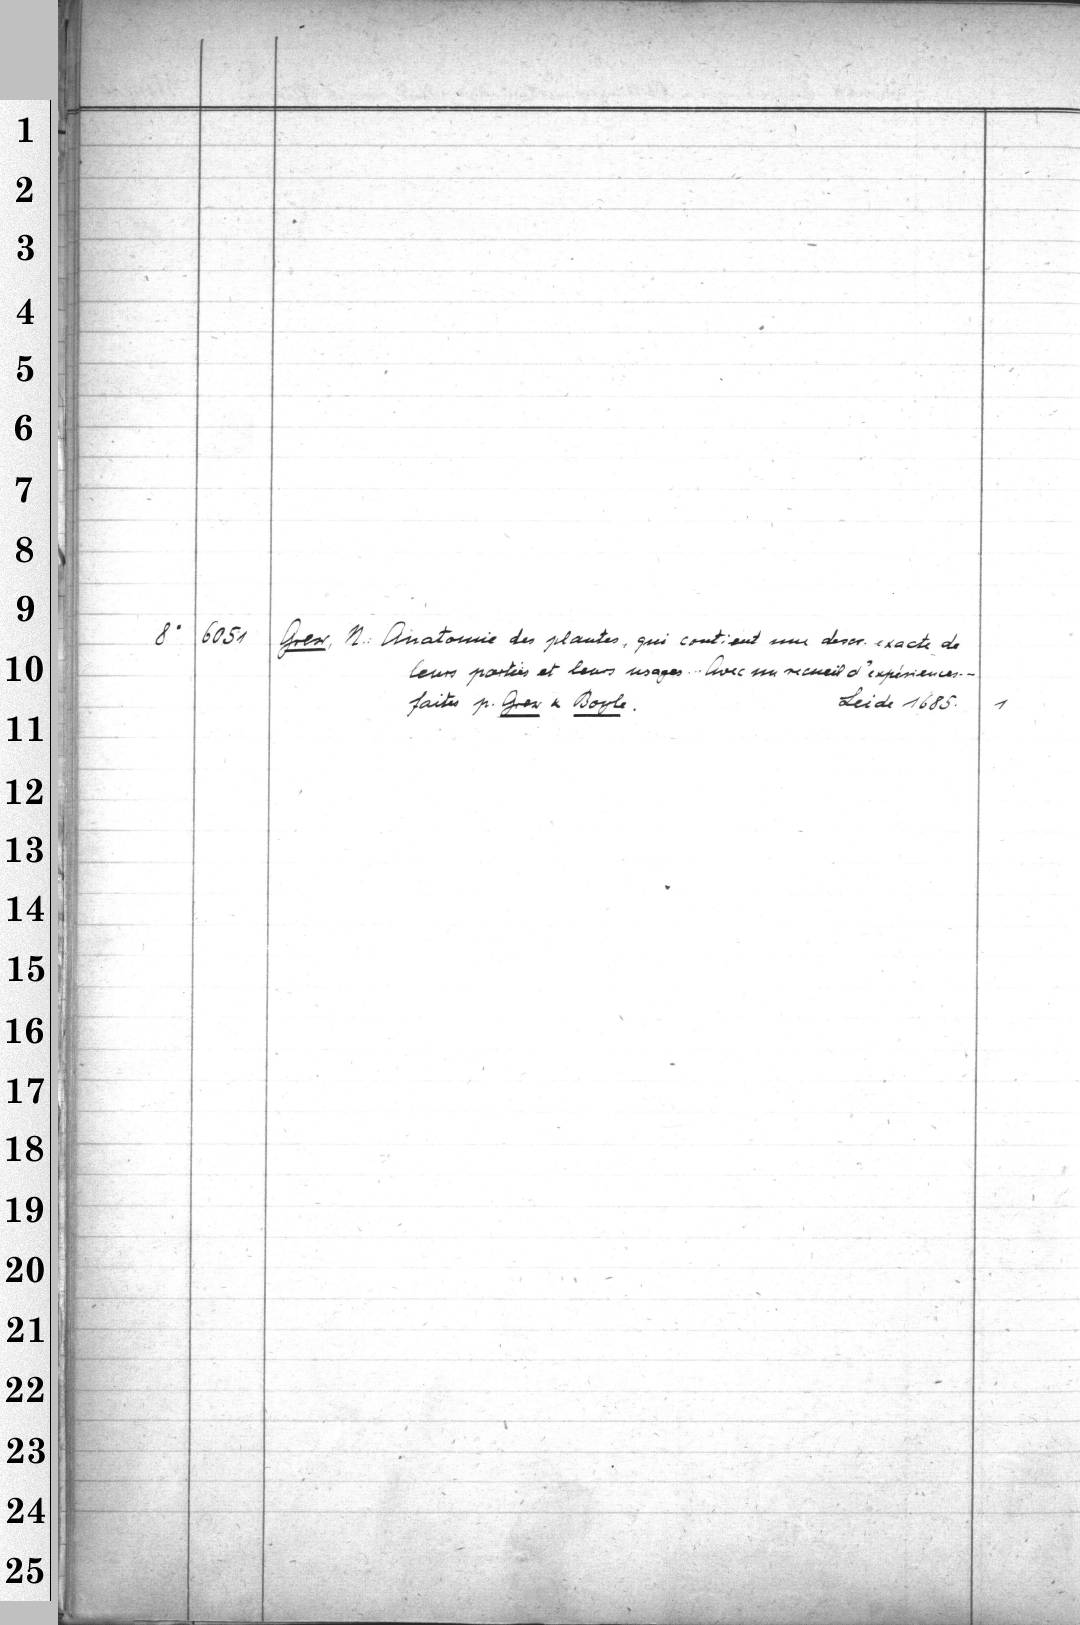 1
2
3
4
5
6
7
8
9
8° 6051 Grew, N.: Anatomie des plantes, qui contient une descr. exacte de
10
leurs parties et leurs usages... Avec un recueil d'expériences..
faites p. Grew & Boyle. Leide 1685. 1
11
12
13
14
15
16
17
18
19
20
21
22
23
24
25